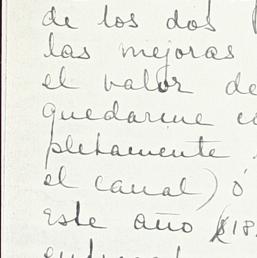 de los dos
las mejoras
el valor de
quedarme co
pletamente
el canal) ó
este año (18